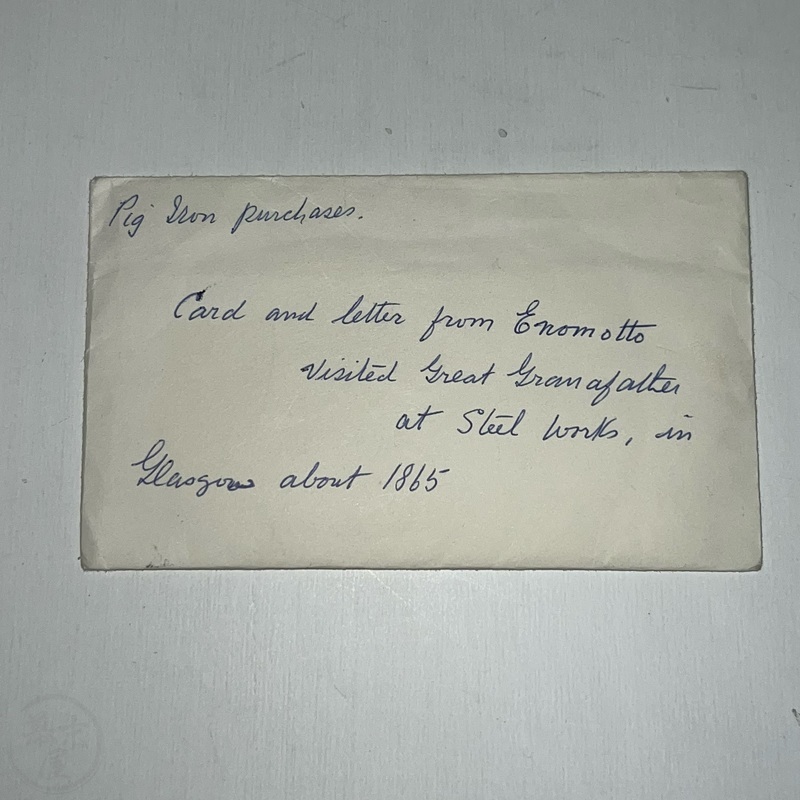 Pig Iron purchases.
Card and letter from Enomotto
visited Great Grandfather
at Steel works, in
Glasgow about 1865